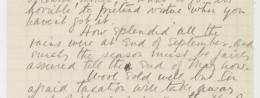 horrible to pretend virtue when you
haven't got it.
How splendid all the
rains were at end of September, and
surely the season must be fairly
assured till the end of May now.
Wool sold well but I'm
afraid taxation will take away